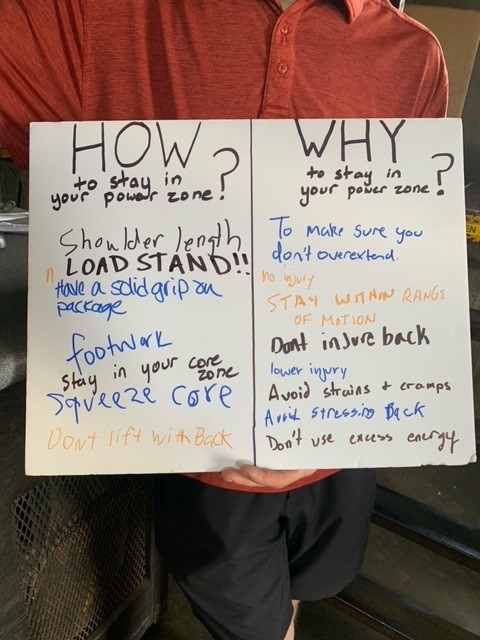 HOW
to stay in
your power zone?
Shoulder length
LOAD STAND!!
n
Have a solid grip on
package
footwork
stay in your core
zone
Squeeze core
Dont lift with Back
WHY
to stay in
your power zone?
To make sure you
don't overextend.
no injury
STAY WITHIN RANGE
OF MOTION
Dont injure back
lower injury
Avoid strains + cramps
Avoid stressing Back
Don't use excess energy
EN